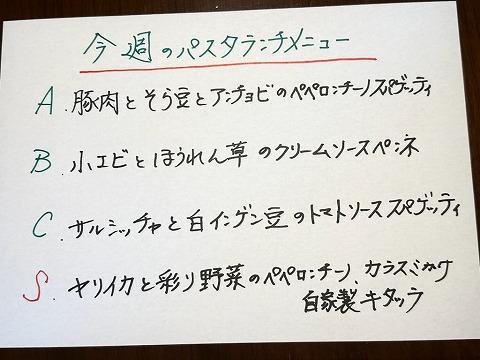 今週のパスタランチメニュー
A.豚肉とそう豆とアンチョビのペペロンチーノスパゲッティ
B.小エビとほうれん草のクリームソースペンネ
C.サルシッチャと白インゲン豆のトマトソーススパゲッティ
S.ヤリイカと彩り野菜のペペロンチーノ、カラスミかけ
自家製キタッラ